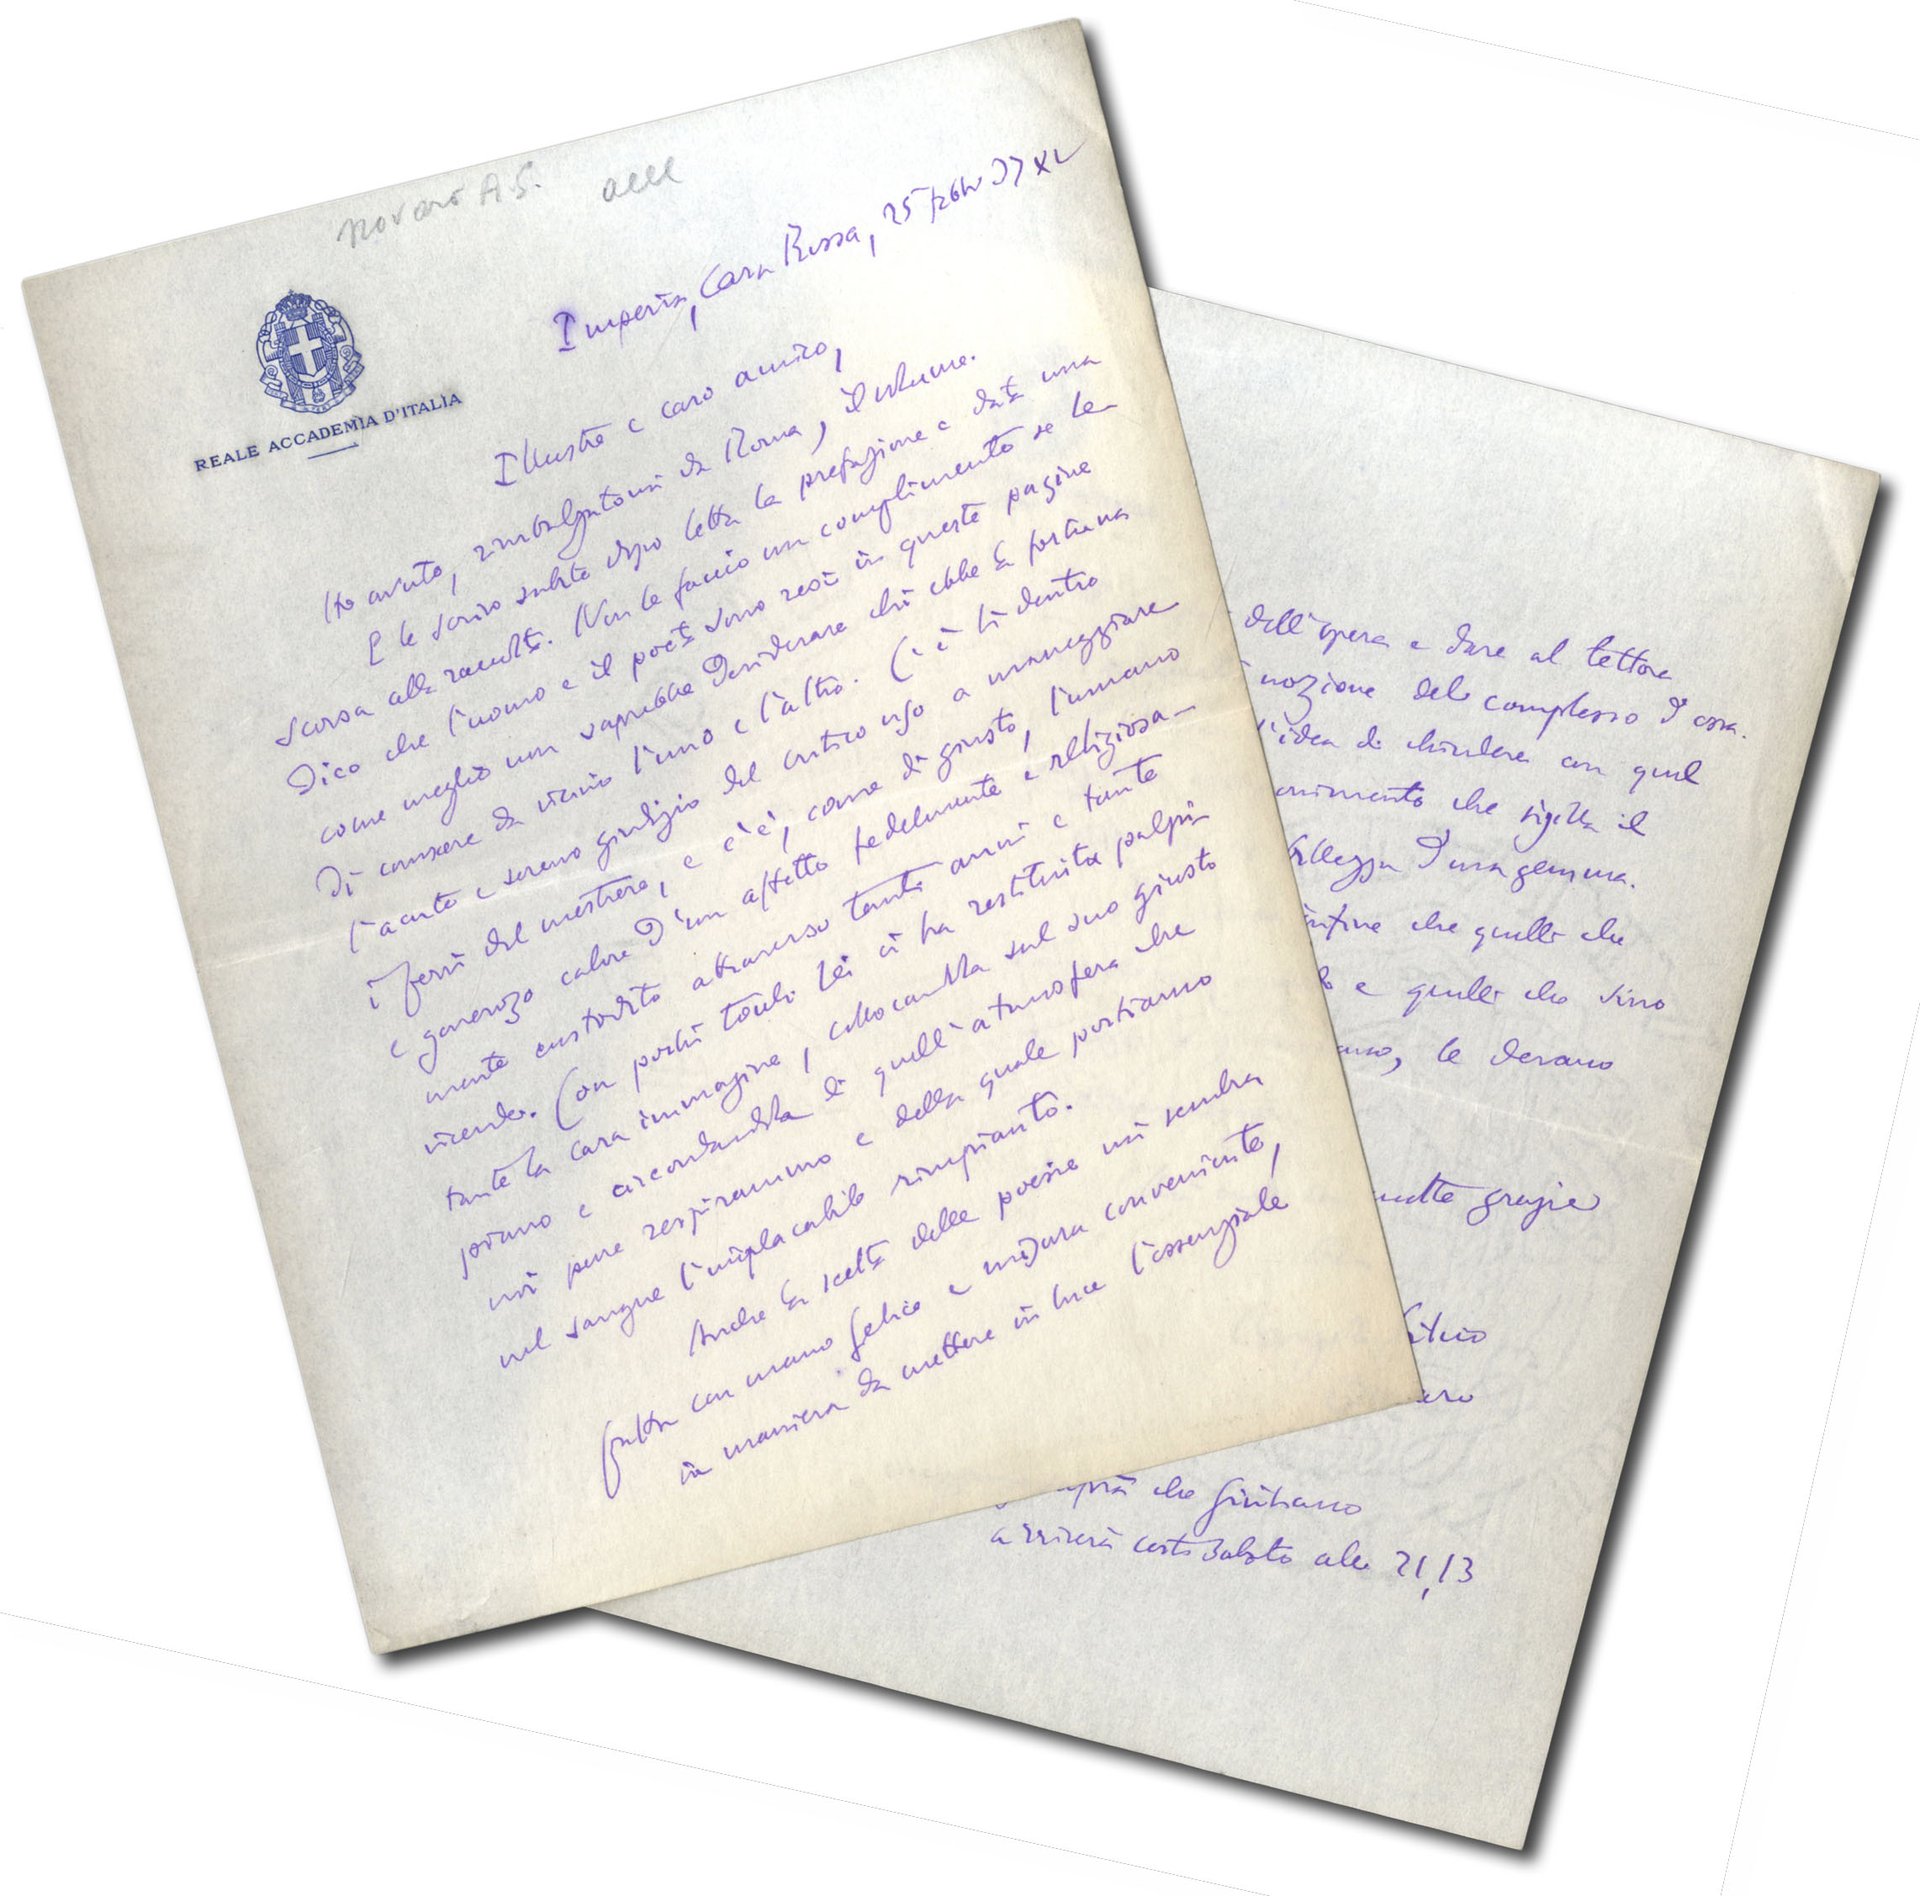 Novaro A.S.
REALE ACCADEMIA D'ITALIA
Imperia, Casa Rossa, 25 febbr 37 XV
Illustre e caro amico,
Ho avuto, rimbalzatomi da Roma, il volume.
E le scrivo subito dopo letta la prefazione e data una
scorsa alla raccolta. Non le faccio un complimento se le
dico che l'uomo e il poeta sono resi in queste pagine
come meglio non saprebbe desiderare chi ebbe la fortuna
di conoscere da vicino l'uno e l'altro. C'è lì dentro
l'acuto e sereno giudizio del critico uso a maneggiare
i ferri del mestiere, e c'è, come di giusto, l'umano
e generoso calore d'un affetto fedelmente e religiosa-
mente custodito attraverso tanti anni e tante
vicende. Con pochi tocchi Lei ci ha restituita palpi-
tante la cara immagine, collocandola sul suo giusto
piano e circondandola di quell'atmosfera che
noi pure respirammo e della quale portiamo
nel sangue l'implacabile rimpianto.
Anche la scelta delle poesie mi sembra
fatta con mano felice e misura conveniente,
in maniera da mettere in luce l'essenziale
dell'opera e dare al lettore
nozione del complesso d'essa.
l'idea di chiudere con quel
componimento che sigilla il
bellezza d'una gemma.
infine che quelli che
e quelli che
le devano
molte grazie
Silvio
che Giuliano
arriverà costì sabato alle 21,13